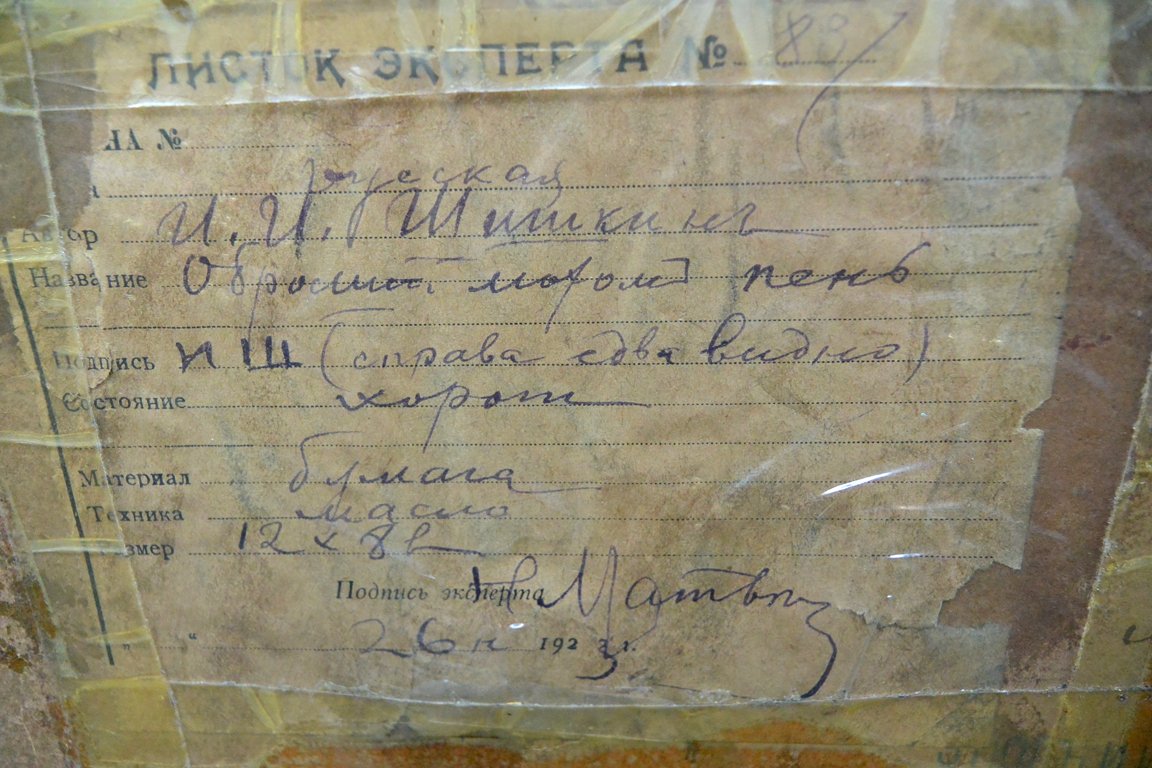 ЛИСТОК ЭКСПЕРТА № 83
НА №
русская
Автор И. И. Шишкинъ
Название Обросший мохом пень
Подпись И Ш (справа едва видно)
Состояние хорош
Материал бумага
Техника масло
змер 12 x 8 в
Подпись эксперта
" " 26 н 1923 г.